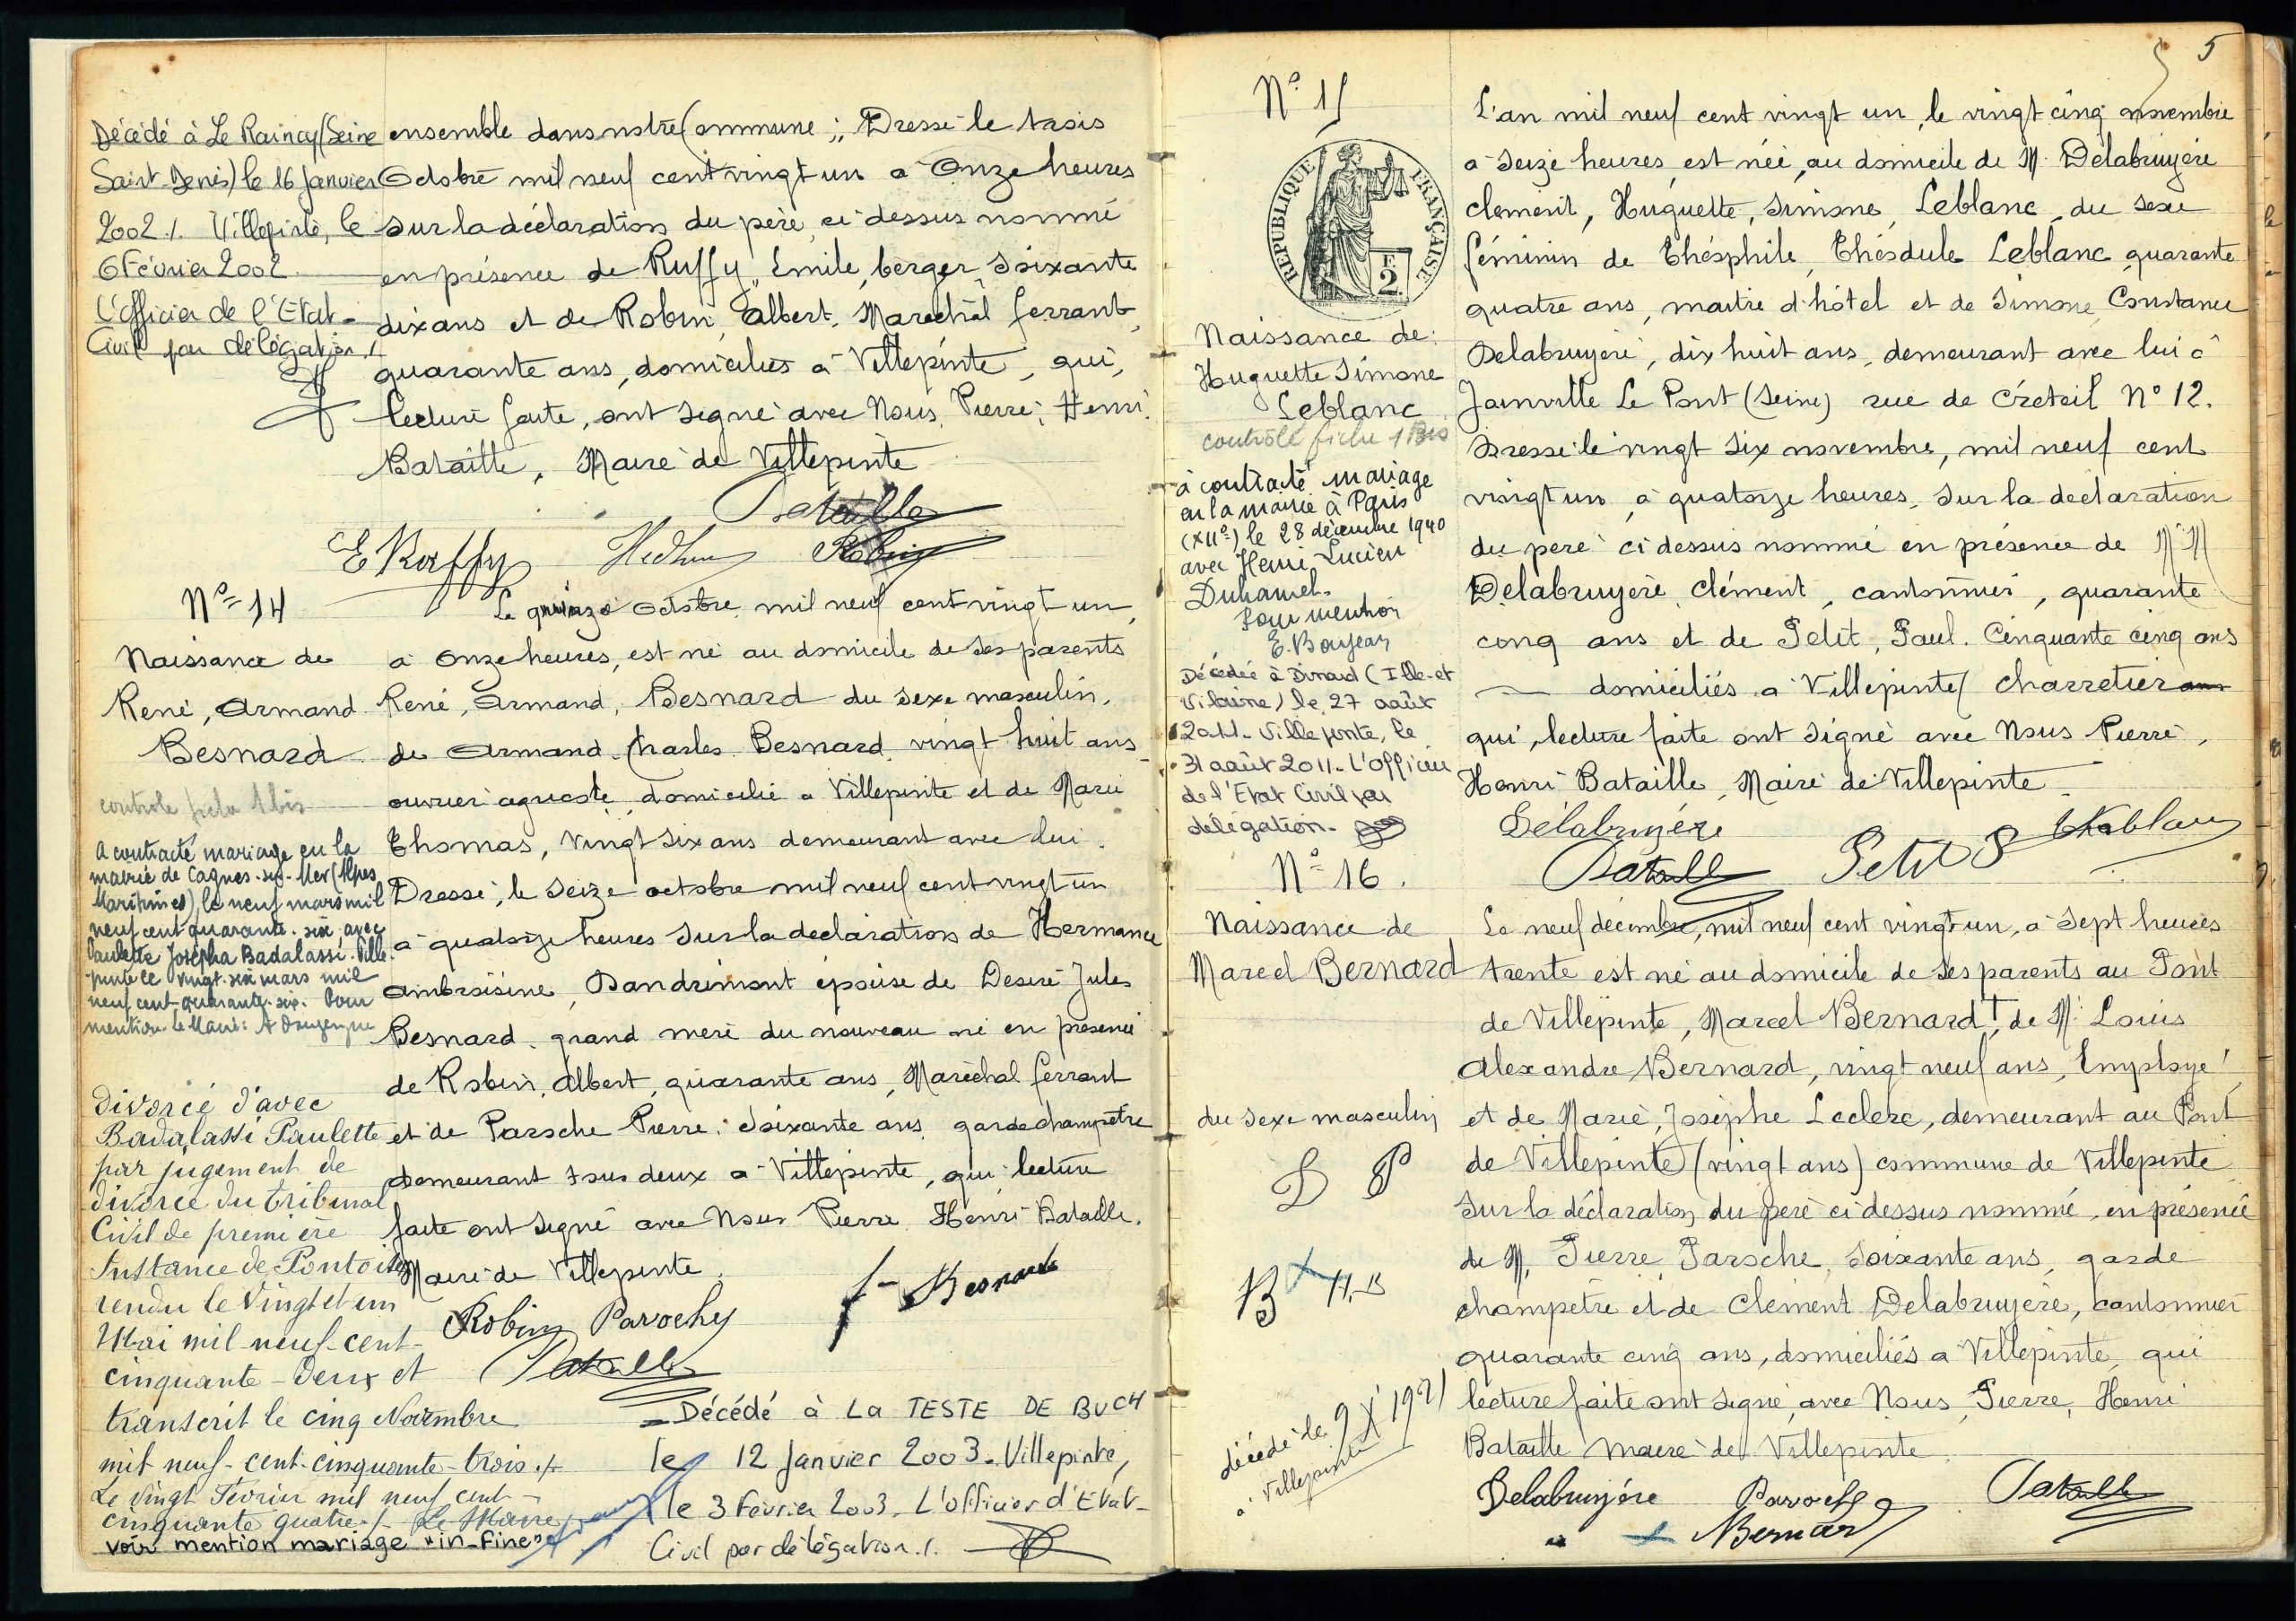 Décédé à Le Raincy (Seine
Saint-Denis) le 16 Janvier
2002 ./. Villepinte, le
6 Février 2002
L'officier de l'Etat-
Civil par délégation ./.
ensemble dans notre Commune ;, Dressé le trois
Octobre mil neuf cent vingt un à Onze heures
sur la déclaration du père ci dessus nommé
en présence de Ruffy, Emile, berger, Soixante
dix ans et de Robin Albert, Maréchal ferrant,
quarante ans, domiciliés à Villepinte, qui,
lecture faite, ont signé avec Nous, Pierre, Henri
Bataille, Maire de Villepinte
Bataille
E Ruffy Robin
N° 14
Naissance de
René, Armand
Besnard
controle fiche 1 bis
A contracté mariage en la
mairie de Cagnes-sur-Mer (Alpes
Maritimes), le neuf mars mil
neuf cent quarante-six, avec
Paulette Josépha Badalassi. Ville-
pinte le vingt-six mars mil
neuf cent quarante-six. Pour
mention. Le Maire:
Divorcé d'avec
Badalassi Paulette
par jugement de
divorce du tribunal
Civil de première
Instance de Pontoise
rendu le Vingt et un
Mai mil-neuf-cent-
cinquante-Deux et
transcrit le cinq Novembre
mil neuf-cent-cinquante-trois ./.
Le Vingt Février mil neuf cent
cinquante quatre ./. Le Maire
voir mention mariage "in-fine"
Le quinze Octobre mil neuf cent vingt un,
à Onze heures, est né au domicile de ses parents
René, Armand, Besnard du Sexe masculin,
de Armand Charles Besnard vingt huit ans
ouvrier agricole domicilié à Villepinte et de Marie
Thomas, Vingt six ans demeurant avec lui.
Dressé, le Seize octobre mil neuf cent vingt un
à quatorze heures Sur la déclaration de Hermance
Ambroisine, Dandrimont épouse de Desiré Jules
Besnard, grand mère du nouveau né en présence
de Robin, Albert, quarante ans, Maréchal ferrant
et de Parsche Pierre, Soixante ans, garde champêtre
demeurant tous deux à Villepinte, qui lecture
faite ont signé avec Nous Pierre Henri Bataille.
Maire de Villepinte.
f- Besnard
Robin Parochy
Bataille
- Décédé à LA TESTE DE BUCH
le 12 Janvier 2003. Villepinte,
le 3 Février 2003. L'officier d'Etat-
Civil par délégation ./.
5
N° 15
REPUBLIQUE FRANÇAISE
F.
2
Naissance de:
Huguette Simone
Leblanc
controlé fiche 1 Bis
à contracté mariage
en la mairie à Paris
(XIIe) le 28 décembre 1940
avec Henri Lucien
Duhamel.
Pour mention
Décédée à Dinard (Ille-et
Vilaine) le 27 août
2011. Villepinte, le
31 août 2011. L'officier
de l'Etat Civil par
délégation.
L'an mil neuf cent vingt un, le vingt cinq novembre
à Seize heures, est née, au domicile de M. Delabruyère
clement, Huguette, Simone, Leblanc, du sexe
féminin de Théophile, Théodule Leblanc quarante
quatre ans, maitre d'hôtel et de Simone Constance
Delabruyère, dix huit ans, demeurant avec lui à
Joinville Le Pont (Seine) rue de Créteil N° 12.
Dressé le vingt Six novembre, mil neuf cent
vingt un, à quatorze heures, Sur la déclaration
du père ci dessus nommé en présence de M.M
Delabruyère, Clément, cantonnier, quarante
cinq ans et de Petit, Paul. Cinquante cinq ans
— domiciliés à Villepinte/ charretier
qui, lecture faite ont Signé avec Nous Pierre,
Henri Bataille, Maire de Villepinte.
Delabruyère Leblanc
Bataille Petit P
N° 16.
Naissance de
Marcel Bernard
du sexe masculin
décédé le 9 XI 1921
à Villepinte
Le neuf décembre, mil neuf cent vingt un, à Sept heures
trente est né au domicile de ses parents au Pont
de Villepinte, Marcel Bernard, de M. Louis
Alexandre Bernard, vingt neuf ans, Employé
et de Marie, Josèphe Leclerc, demeurant au Pont
de Villepinte (vingt ans) commune de Villepinte
Sur la déclaration du père ci dessus nommé, en présence
de M. Pierre Parsche, Soixante ans, garde
champêtre et de Clément Delabruyère, cantonnier
quarante cinq ans, domiciliés à Villepinte, qui
lecture faite ont signé, avec Nous, Pierre, Henri
Bataille maire de Villepinte.
Delabruyère Parochy Bataille
Bernard